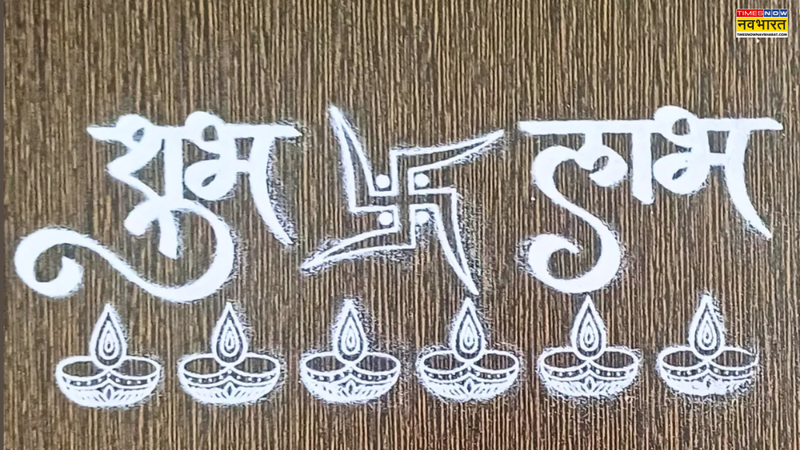 TIMES NOW
नवभारत
TIMESNOWNAVBHARAT.COM
शुभ लाभ